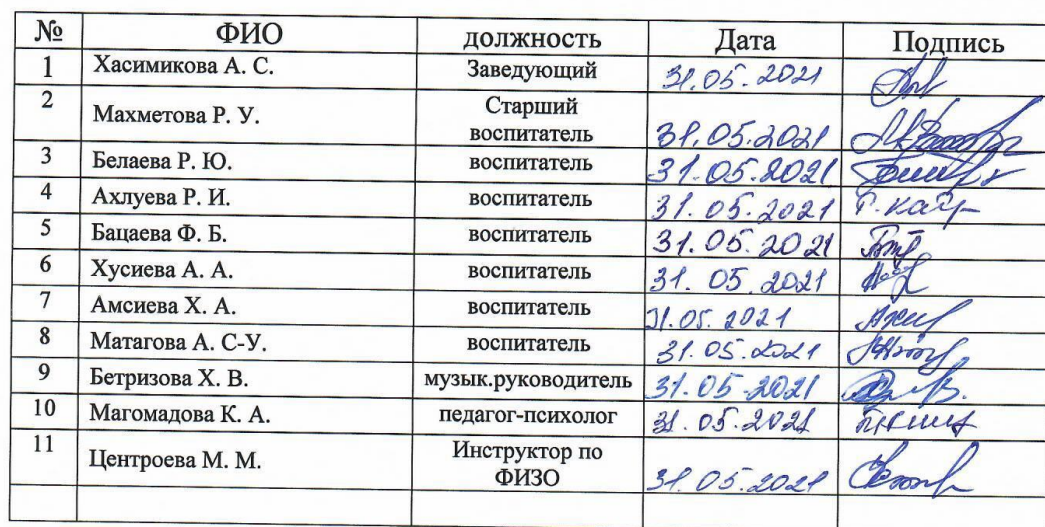 № ФИО должность Дата Подпись
1 Хасимикова А. С. Заведующий 31.05.2021
2 Махметова Р. У. Старший
воспитатель 31.05.2021
3 Белаева Р. Ю. воспитатель 31.05.2021
4 Ахлуева Р. И. воспитатель 31.05.2021
5 Бацаева Ф. Б. воспитатель 31.05.2021
6 Хусиева А. А. воспитатель 31.05.2021
7 Амсиева Х. А. воспитатель 31.05.2021
8 Матагова А. С-У. воспитатель 31.05.2021
9 Бетризова Х. В. музык.руководитель 31.05.2021
10 Магомадова К. А. педагог-психолог 31.05.2021
11 Центроева М. М. Инструктор по
ФИЗО 31.05.2021